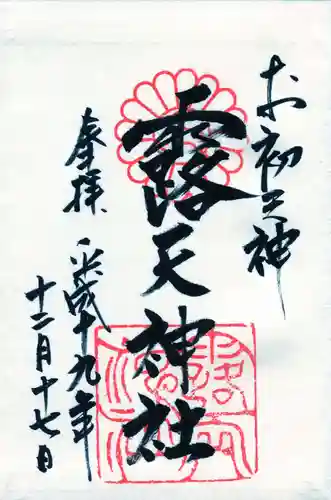 お初天神
露天神社
奉拝 平成十九年
十二月十七日